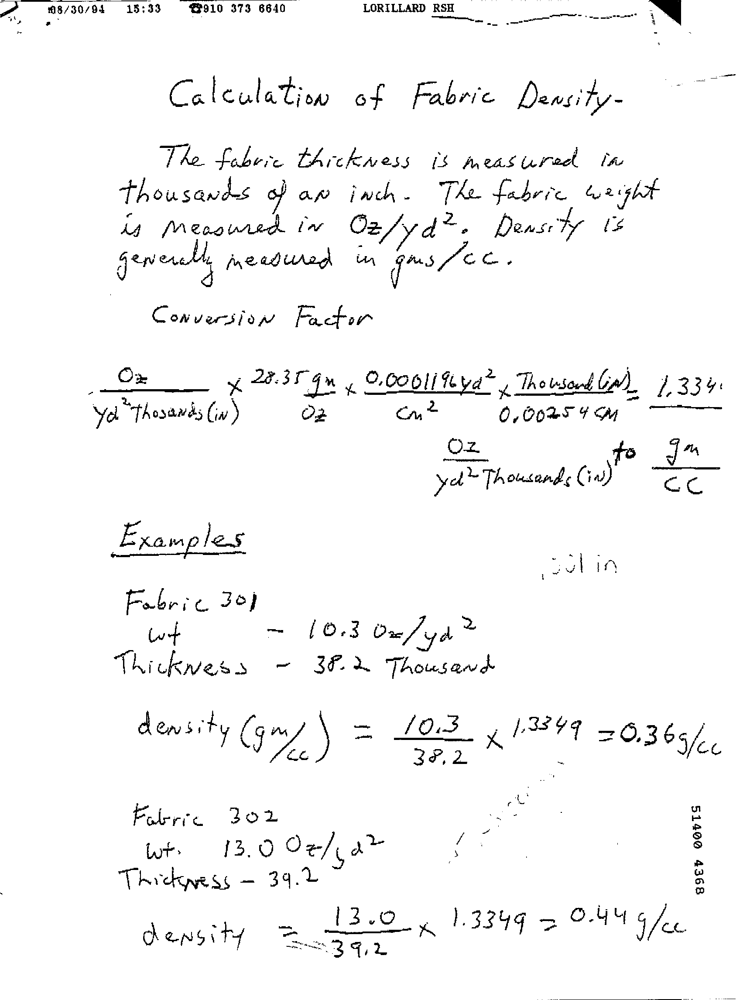 08/30/94 15:33 ☎910 373 6640 LORILLARD RSH
Calculation of Fabric Density-
The fabric thickness is measured in
thousands of an inch. The fabric weight
is measured in Oz/yd². Density is
generally measured in gms/cc.
Conversion Factor
Oz / yd² Thosands (in) × 28.35 gm / Oz × 0.0001196 yd² / cm² × Thousand (in) / 0.00254 cm = 1.334
Oz / yd² Thousands (in) to gm / cc
Examples
in
Fabric 301
wt - 10.3 Oz/yd²
Thickness - 38.2 Thousand
density (gm/cc) = 10.3 / 38.2 × 1.3349 = 0.36 g/cc
Fabric 302
wt. 13.0 Oz/yd²
Thickness - 39.2
density = 13.0 / 39.2 × 1.3349 = 0.44 g/cc
51400 4368